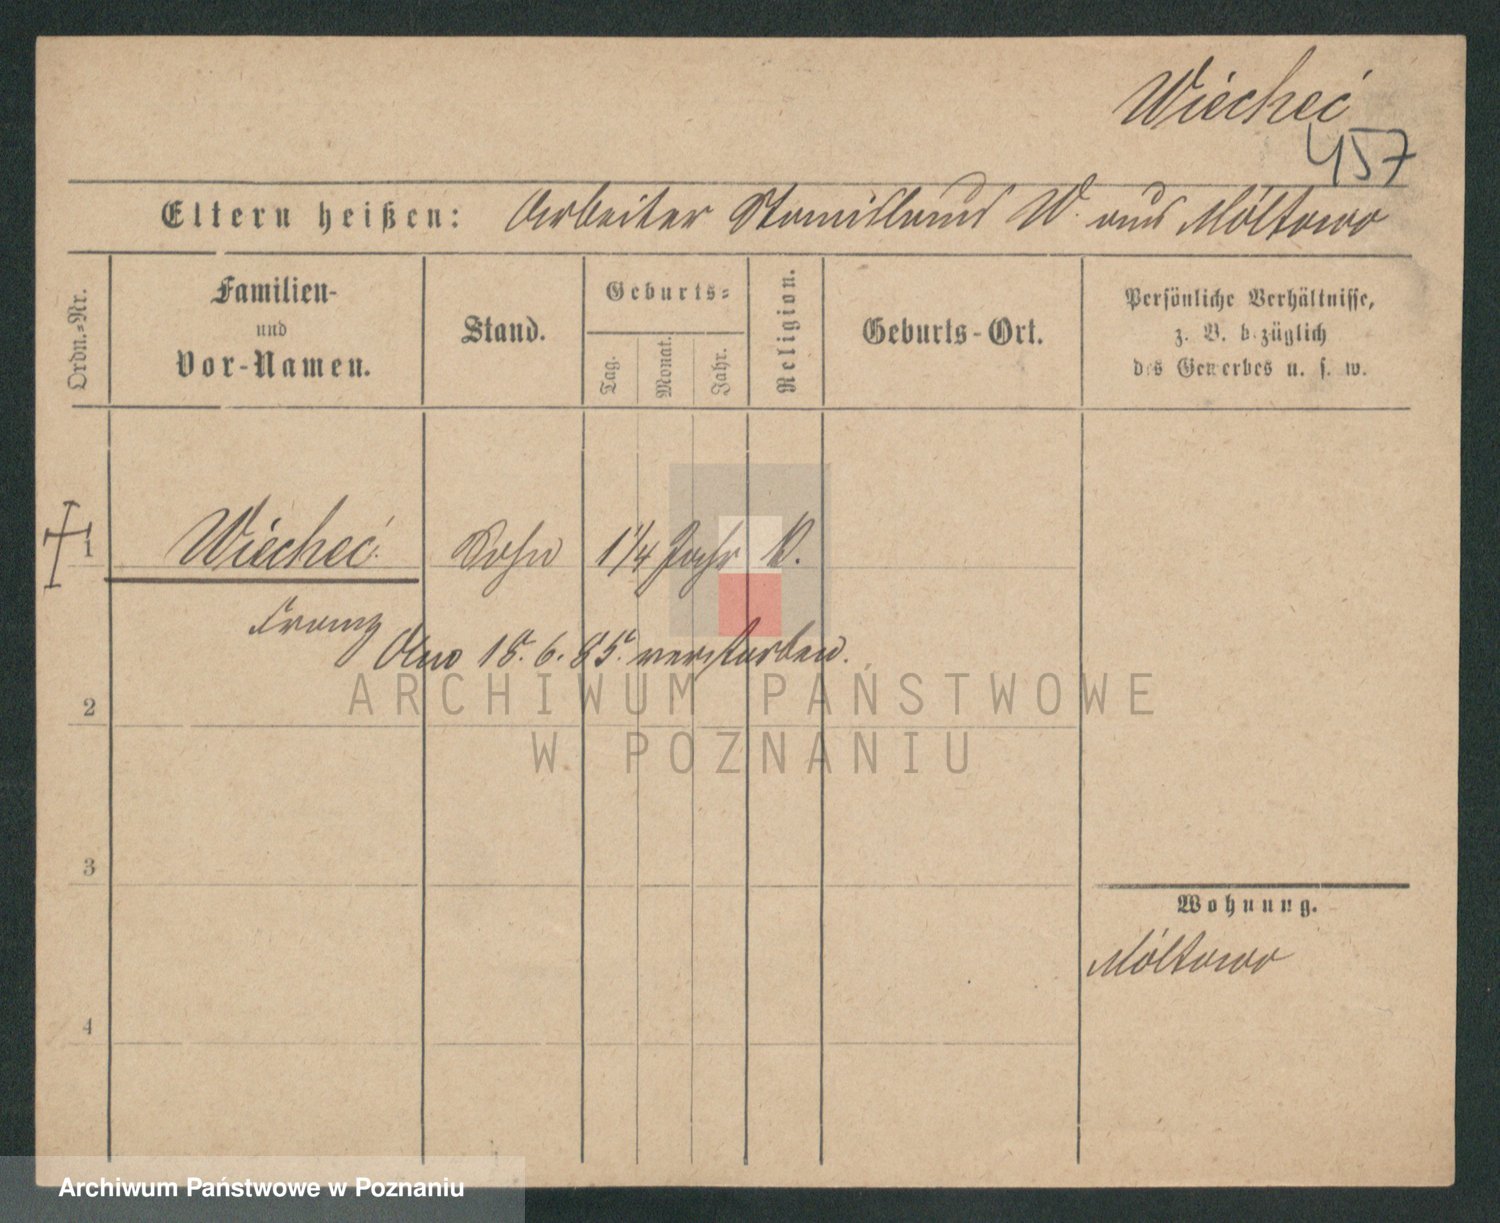 Wiecheć
457
Eltern heißen: Arbeiter Stanislaus W. aus Móltowo
Ordn.-Nr.
Familien-
und
Vor-Namen.
Stand.
Geburts-
Tag.
Monat.
Jahr.
Religion.
Geburts-Ort.
Persönliche Verhältnisse,
z. B. bezüglich
des Gewerbes u. s. w.
1 Wiecheć Sohn 1 1/4 Jahr
Franz
18. 6. 85. verstorben.
2
3
4
Wohnung.
Móltowo
ARCHIWUM PAŃSTWOWE
W POZNANIU
Archiwum Państwowe w Poznaniu